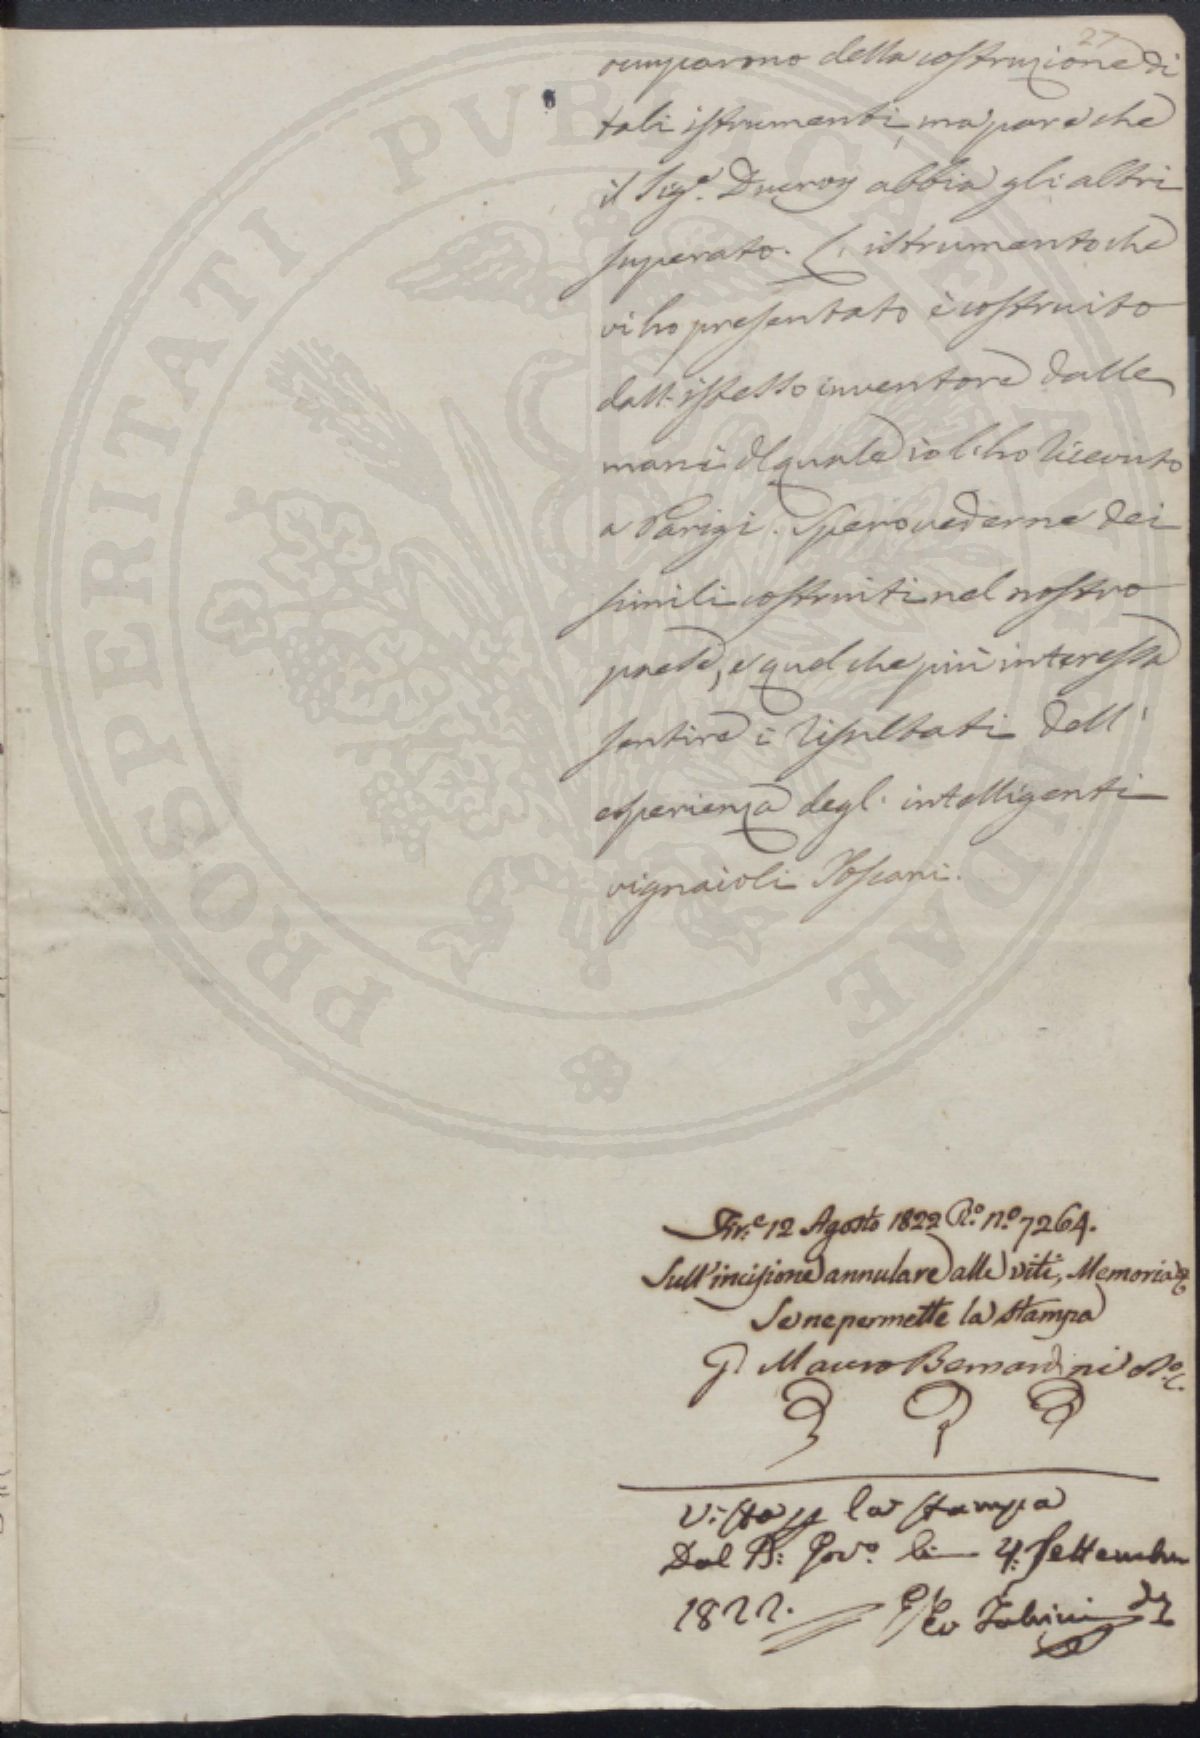 27
occuparono della costruzione di
tali istrumenti, ma pare che
il Sig.e Ducroy abbia gli altri
superato. L'istrumento che
vi ho presentato è costruito
dall'istesso inventore dalle
mani del quale io l'ho ricevuto
a Parigi. Spero vederne dei
simili costruiti nel nostro
paese, e quel che più interessa
sentire i risultati dell'
esperienza degl'intelligenti
vignaioli Toscani.
Fir.e 12 Agosto 1822 R.o n.o 7264.
Sull'incisione annulare alle viti, Memoria
Se ne permette la stampa
Mauro Bernardini
Visto per la stampa
Dal B: Gov.o li 4: Settembre
1822.
PROSPERITATI PVBLICAE AVGENDAE